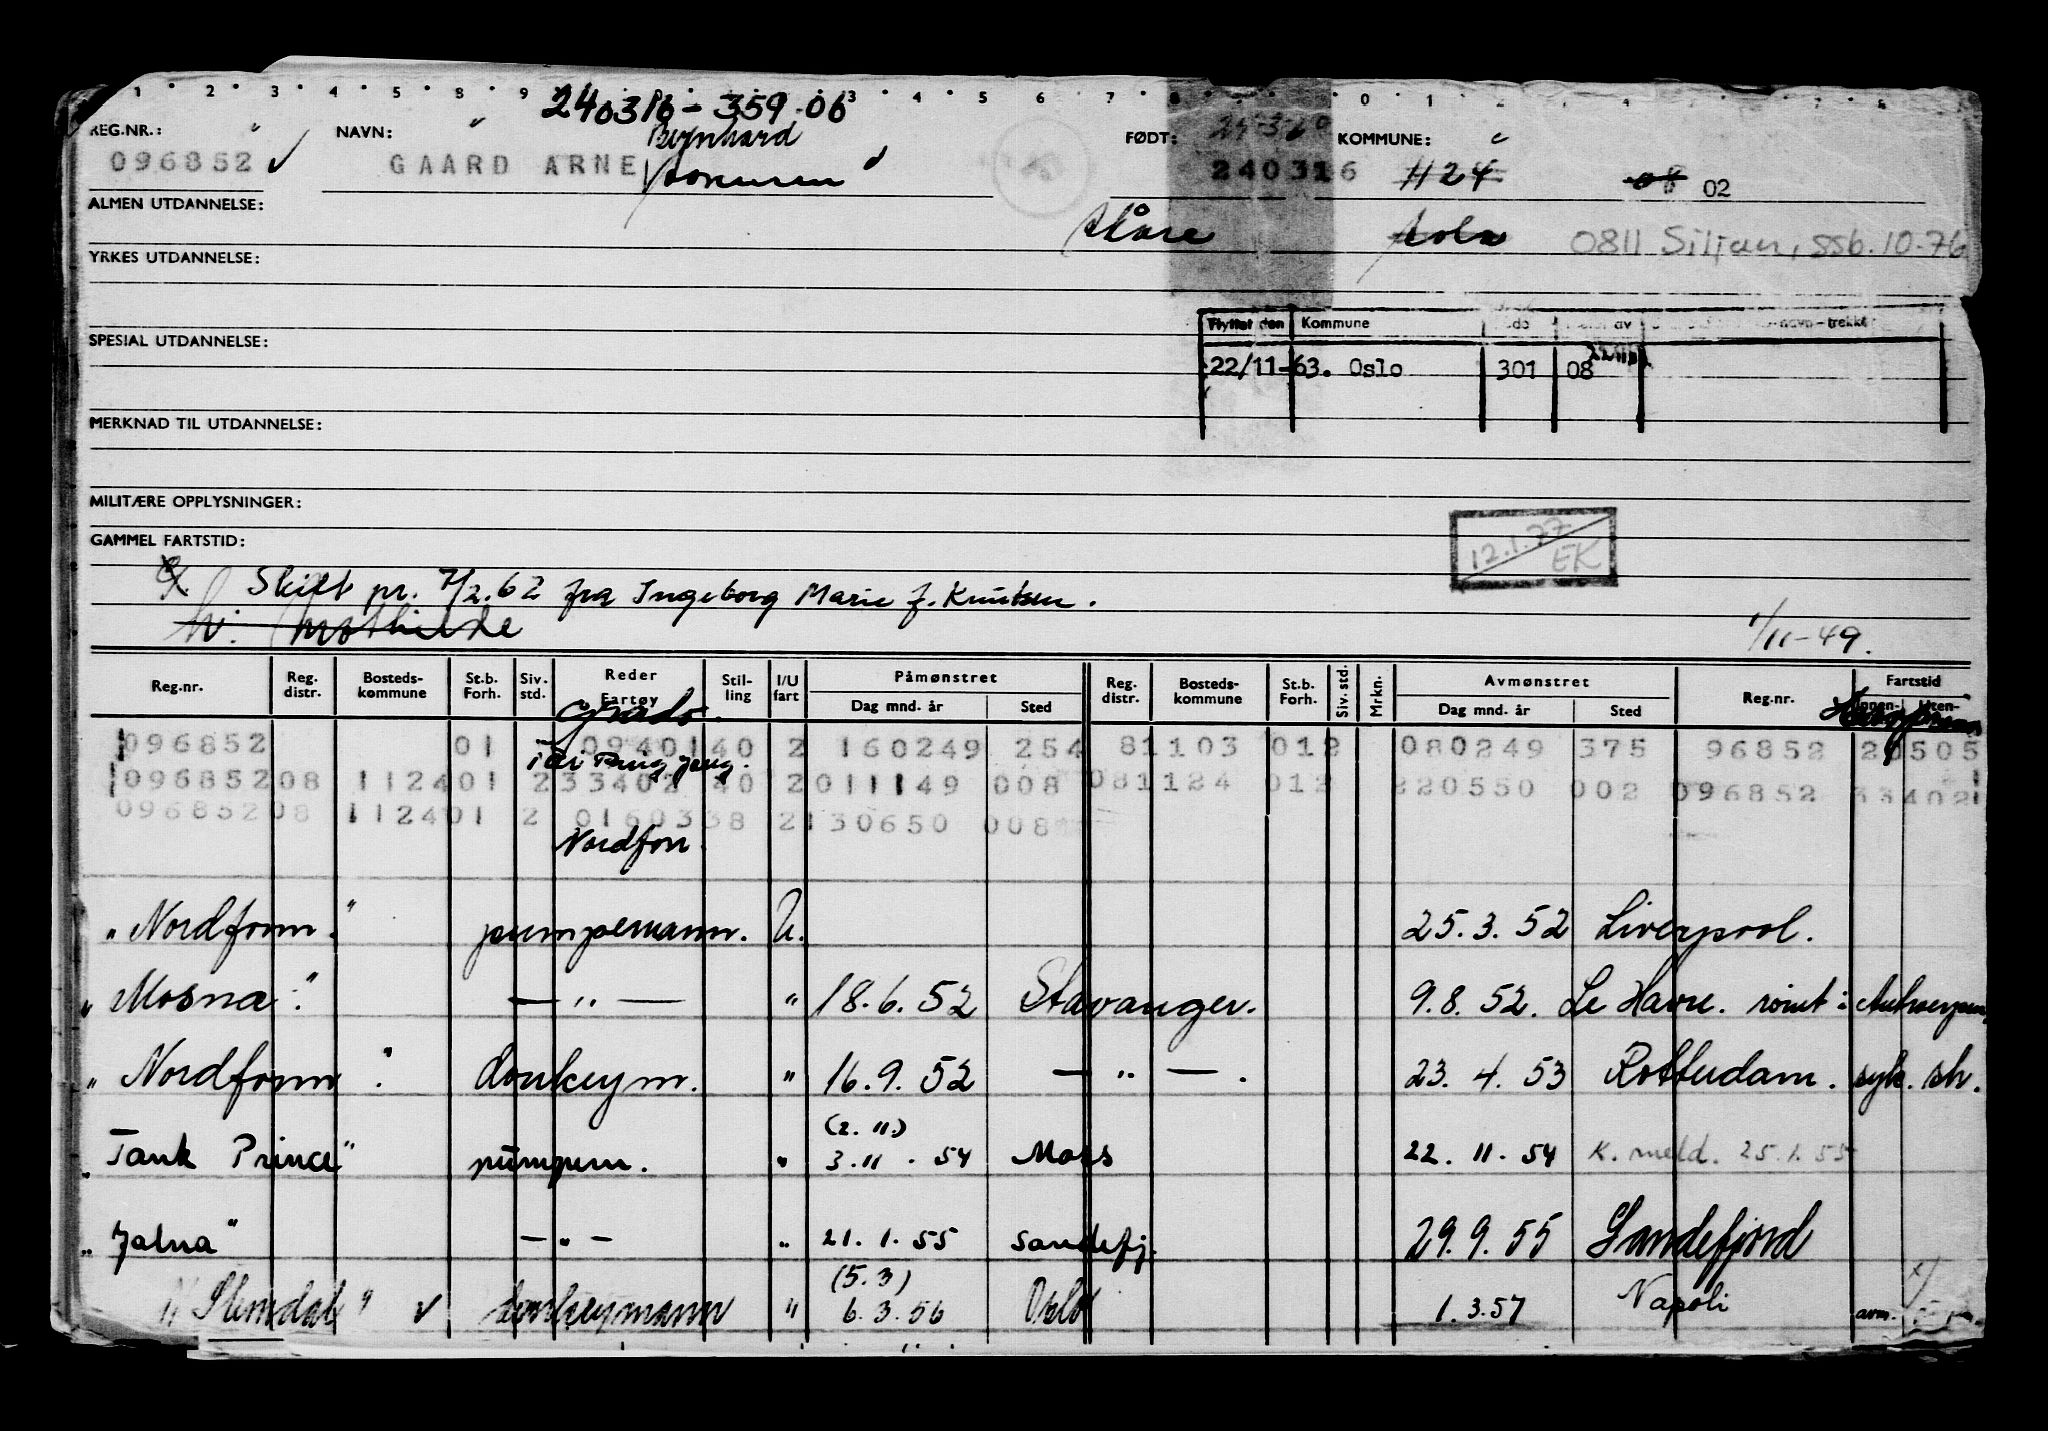 1 2 3 4 5 8 9 3 4 5 6 7 8 0 1 2 4 7 8
240316 - 359.06
REG.NR.: NAVN: Bernhard FØDT: KOMMUNE:
096852 GAARD ARNE 240316 1124 08 02
ALMEN UTDANNELSE:
Skåre Sola 0811 Siljan, ssb. 10-76
YRKES UTDANNELSE:
Flyttet den Kommune
SPESIAL UTDANNELSE:
22/11-63. Oslo 301 08
MERKNAD TIL UTDANNELSE:
MILITÆRE OPPLYSNINGER:
12.1.77
EK
GAMMEL FARTSTID:
Skilt pr. 7/2.62 fra Ingeborg Marie f. Knutsen.
h. Mathilde
1/11-49.
Reg.nr. Reg. distr. Bosteds-kommune St.b. Forh. Siv. std. Reder Fartøy Stil-ling I/U fart Påmønstret Dag mnd. år Sted Reg. distr. Bosteds-kommune St.b. Forh. Siv. std. Mrkn. Avmønstret Dag mnd. år Sted Reg.nr. Fartstid Innen- Uten-
096852 01 0940140 2 160249 254 81103 012 080249 375 96852 20505
096852 08 112401 233402 40 2 011149 008 081124 012 220550 002 096852 33402
096852 08 112401 2 0160338 2 130650 008
Nordfon.
"Nordfonn." pumpemann. U. 25.3.52 Liverpool.
"Mosna". — " — " 18.6.52 Stavanger. 9.8.52. Le Havre. rømt i Antwerpen
"Nordfonn". donkeym. " 16.9.52 — " — . 23.4.53 Rotterdam. syk.
(2.11.)
"Tank Prince" pumpem. " 3.11.54 Moss 22.11.54 K. meld. 25.1.55
"Jalna" — " — " 21.1.55 Sandefj. 29.9.55 Sandefjord
(5.3)
"Slemdal" donkeymann " 6.3.56 Oslo 1.3.57 Napoli avm.